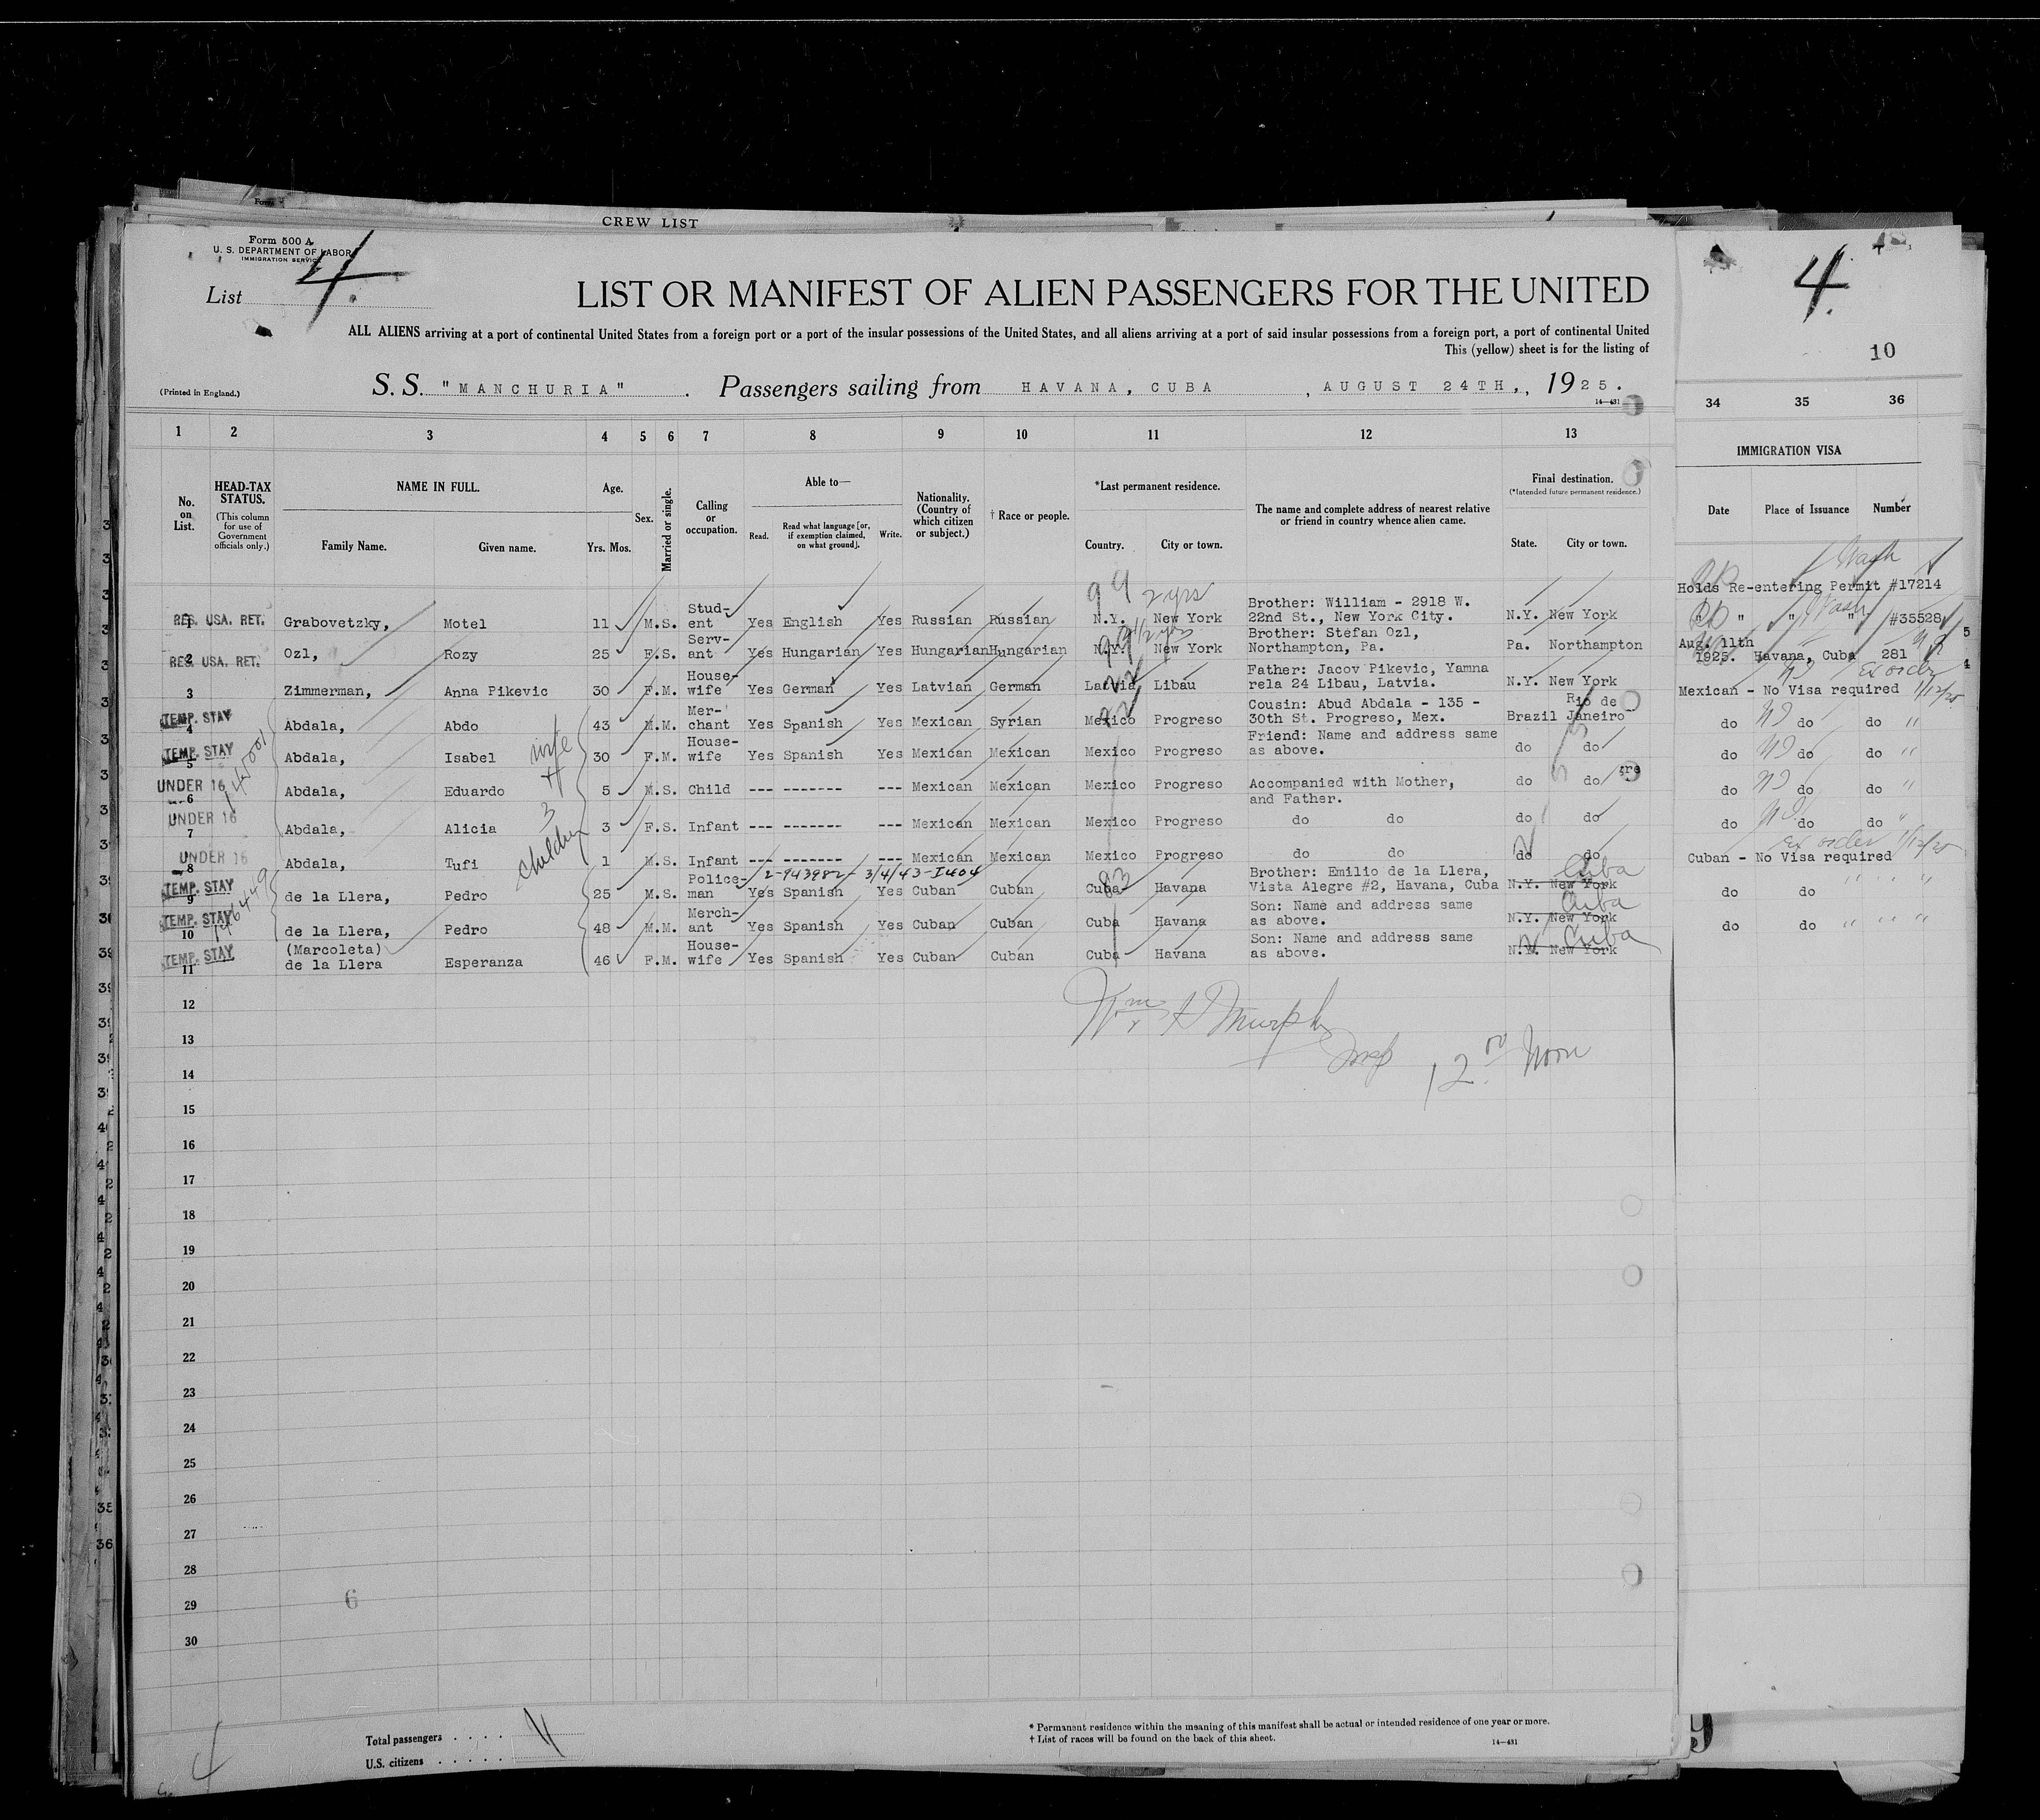 CREW LIST
Form 500 A
U. S. DEPARTMENT OF LABOR
IMMIGRATION SERVICE
List 4.
LIST OR MANIFEST OF ALIEN PASSENGERS FOR THE UNITED
ALL ALIENS arriving at a port of continental United States from a foreign port or a port of the insular possessions of the United States, and all aliens arriving at a port of said insular possessions from a foreign port, a port of continental United
This (yellow) sheet is for the listing of
(Printed in England.)
S. S. "MANCHURIA". Passengers sailing from HAVANA, CUBA, AUGUST 24TH,, 1925.
14—431
4.
10
1 2 3 4 5 6 7 8 9 10 11 12 13 34 35 36
No. on List.
HEAD-TAX STATUS.
(This column for use of Government officials only.)
NAME IN FULL.
Family Name. Given name.
Age.
Yrs. Mos.
Sex.
Married or single.
Calling or occupation.
Able to—
Read. Read what language [or, if exemption claimed, on what ground]. Write.
Nationality. (Country of which citizen or subject.)
† Race or people.
*Last permanent residence.
Country. City or town.
The name and complete address of nearest relative or friend in country whence alien came.
Final destination.
(*Intended future permanent residence.)
State. City or town.
IMMIGRATION VISA
Date Place of Issuance Number
1 RES. USA. RET. Grabovetzky, Motel 11 M. S. Stud-ent Yes English Yes Russian Russian N.Y. New York Brother: William - 2918 W. 22nd St., New York City. N.Y. New York
99 2 yrs
2 RES. USA. RET. Ozl, Rozy 25 F. S. Serv-ant Yes Hungarian Yes Hungarian Hungarian N.Y. New York Brother: Stefan Ozl, Northampton, Pa. Pa. Northampton
3 Zimmerman, Anna Pikevic 30 F. M. House-wife Yes German Yes Latvian German Latvia Libau Father: Jacov Pikevic, Yamna rela 24 Libau, Latvia. N.Y. New York
4 TEMP. STAY Abdala, Abdo 43 M. M. Mer-chant Yes Spanish Yes Mexican Syrian Mexico Progreso Cousin: Abud Abdala - 135 - 30th St. Progreso, Mex. Brazil Rio de Janeiro
5 TEMP. STAY Abdala, Isabel 30 F. M. House-wife Yes Spanish Yes Mexican Mexican Mexico Progreso Friend: Name and address same as above. do do
6 UNDER 16 Abdala, Eduardo 5 M. S. Child --- ------- --- Mexican Mexican Mexico Progreso Accompanied with Mother, and Father. do do
7 UNDER 16 Abdala, Alicia 3 F. S. Infant --- ------- --- Mexican Mexican Mexico Progreso do do do do
8 UNDER 16 Abdala, Tufi 1 M. S. Infant --- ------- --- Mexican Mexican Mexico Progreso do do do do
wife + 3 children
2-943982- 3/4/43-I404
9 TEMP. STAY de la Llera, Pedro 25 M. S. Police-man Yes Spanish Yes Cuban Cuban Cuba Havana Brother: Emilio de la Llera, Vista Alegre #2, Havana, Cuba N.Y. New York Cuba
10 TEMP. STAY de la Llera, Pedro 48 M. M. Merch-ant Yes Spanish Yes Cuban Cuban Cuba Havana Son: Name and address same as above. N.Y. New York Cuba
11 TEMP. STAY (Marcoleta) de la Llera Esperanza 46 F. M. House-wife Yes Spanish Yes Cuban Cuban Cuba Havana Son: Name and address same as above. N.Y. New York Cuba
Wash
Holds Re-entering Permit #17214
" " " #35528
Aug. 11th 1925. Havana, Cuba 281
Ex order
Mexican - No Visa required 1/12/25
do do do "
do do do "
do do do "
do do do "
Ex order
Cuban - No Visa required 1/12/25
do do " " "
do do " " "
12
Wm Murphy
Insp 12 00 Noon
13
14
15
16
17
18
19
20
21
22
23
24
25
26
27
28
29
6
30
Total passengers . . . . 11
U.S. citizens . . . . .
* Permanent residence within the meaning of this manifest shall be actual or intended residence of one year or more.
† List of races will be found on the back of this sheet.
14—431
4